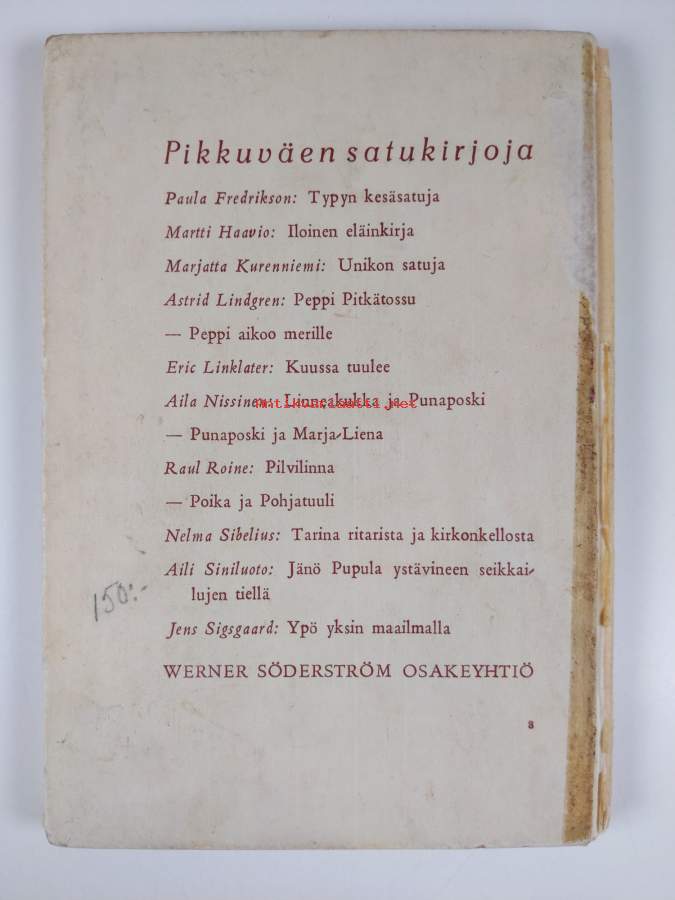 Pikkuväen satukirjoja
Paula Fredrikson: Typyn kesäsatuja
Martti Haavio: Iloinen eläinkirja
Marjatta Kurenniemi: Unikon satuja
Astrid Lindgren: Peppi Pitkätossu
— Peppi aikoo merille
Eric Linklater: Kuussa tuulee
Aila Nissinen: Linneakukka ja Punaposki
antikvariaatti.net
— Punaposki ja Marja-Liena
Raul Roine: Pilvilinna
— Poika ja Pohjatuuli
Nelma Sibelius: Tarina ritarista ja kirkonkellosta
Aili Siniluoto: Jänö Pupula ystävineen seikkai-
lujen tiellä
150:-
Jens Sigsgaard: Ypö yksin maailmalla
WERNER SÖDERSTRÖM OSAKEYHTIÖ
8